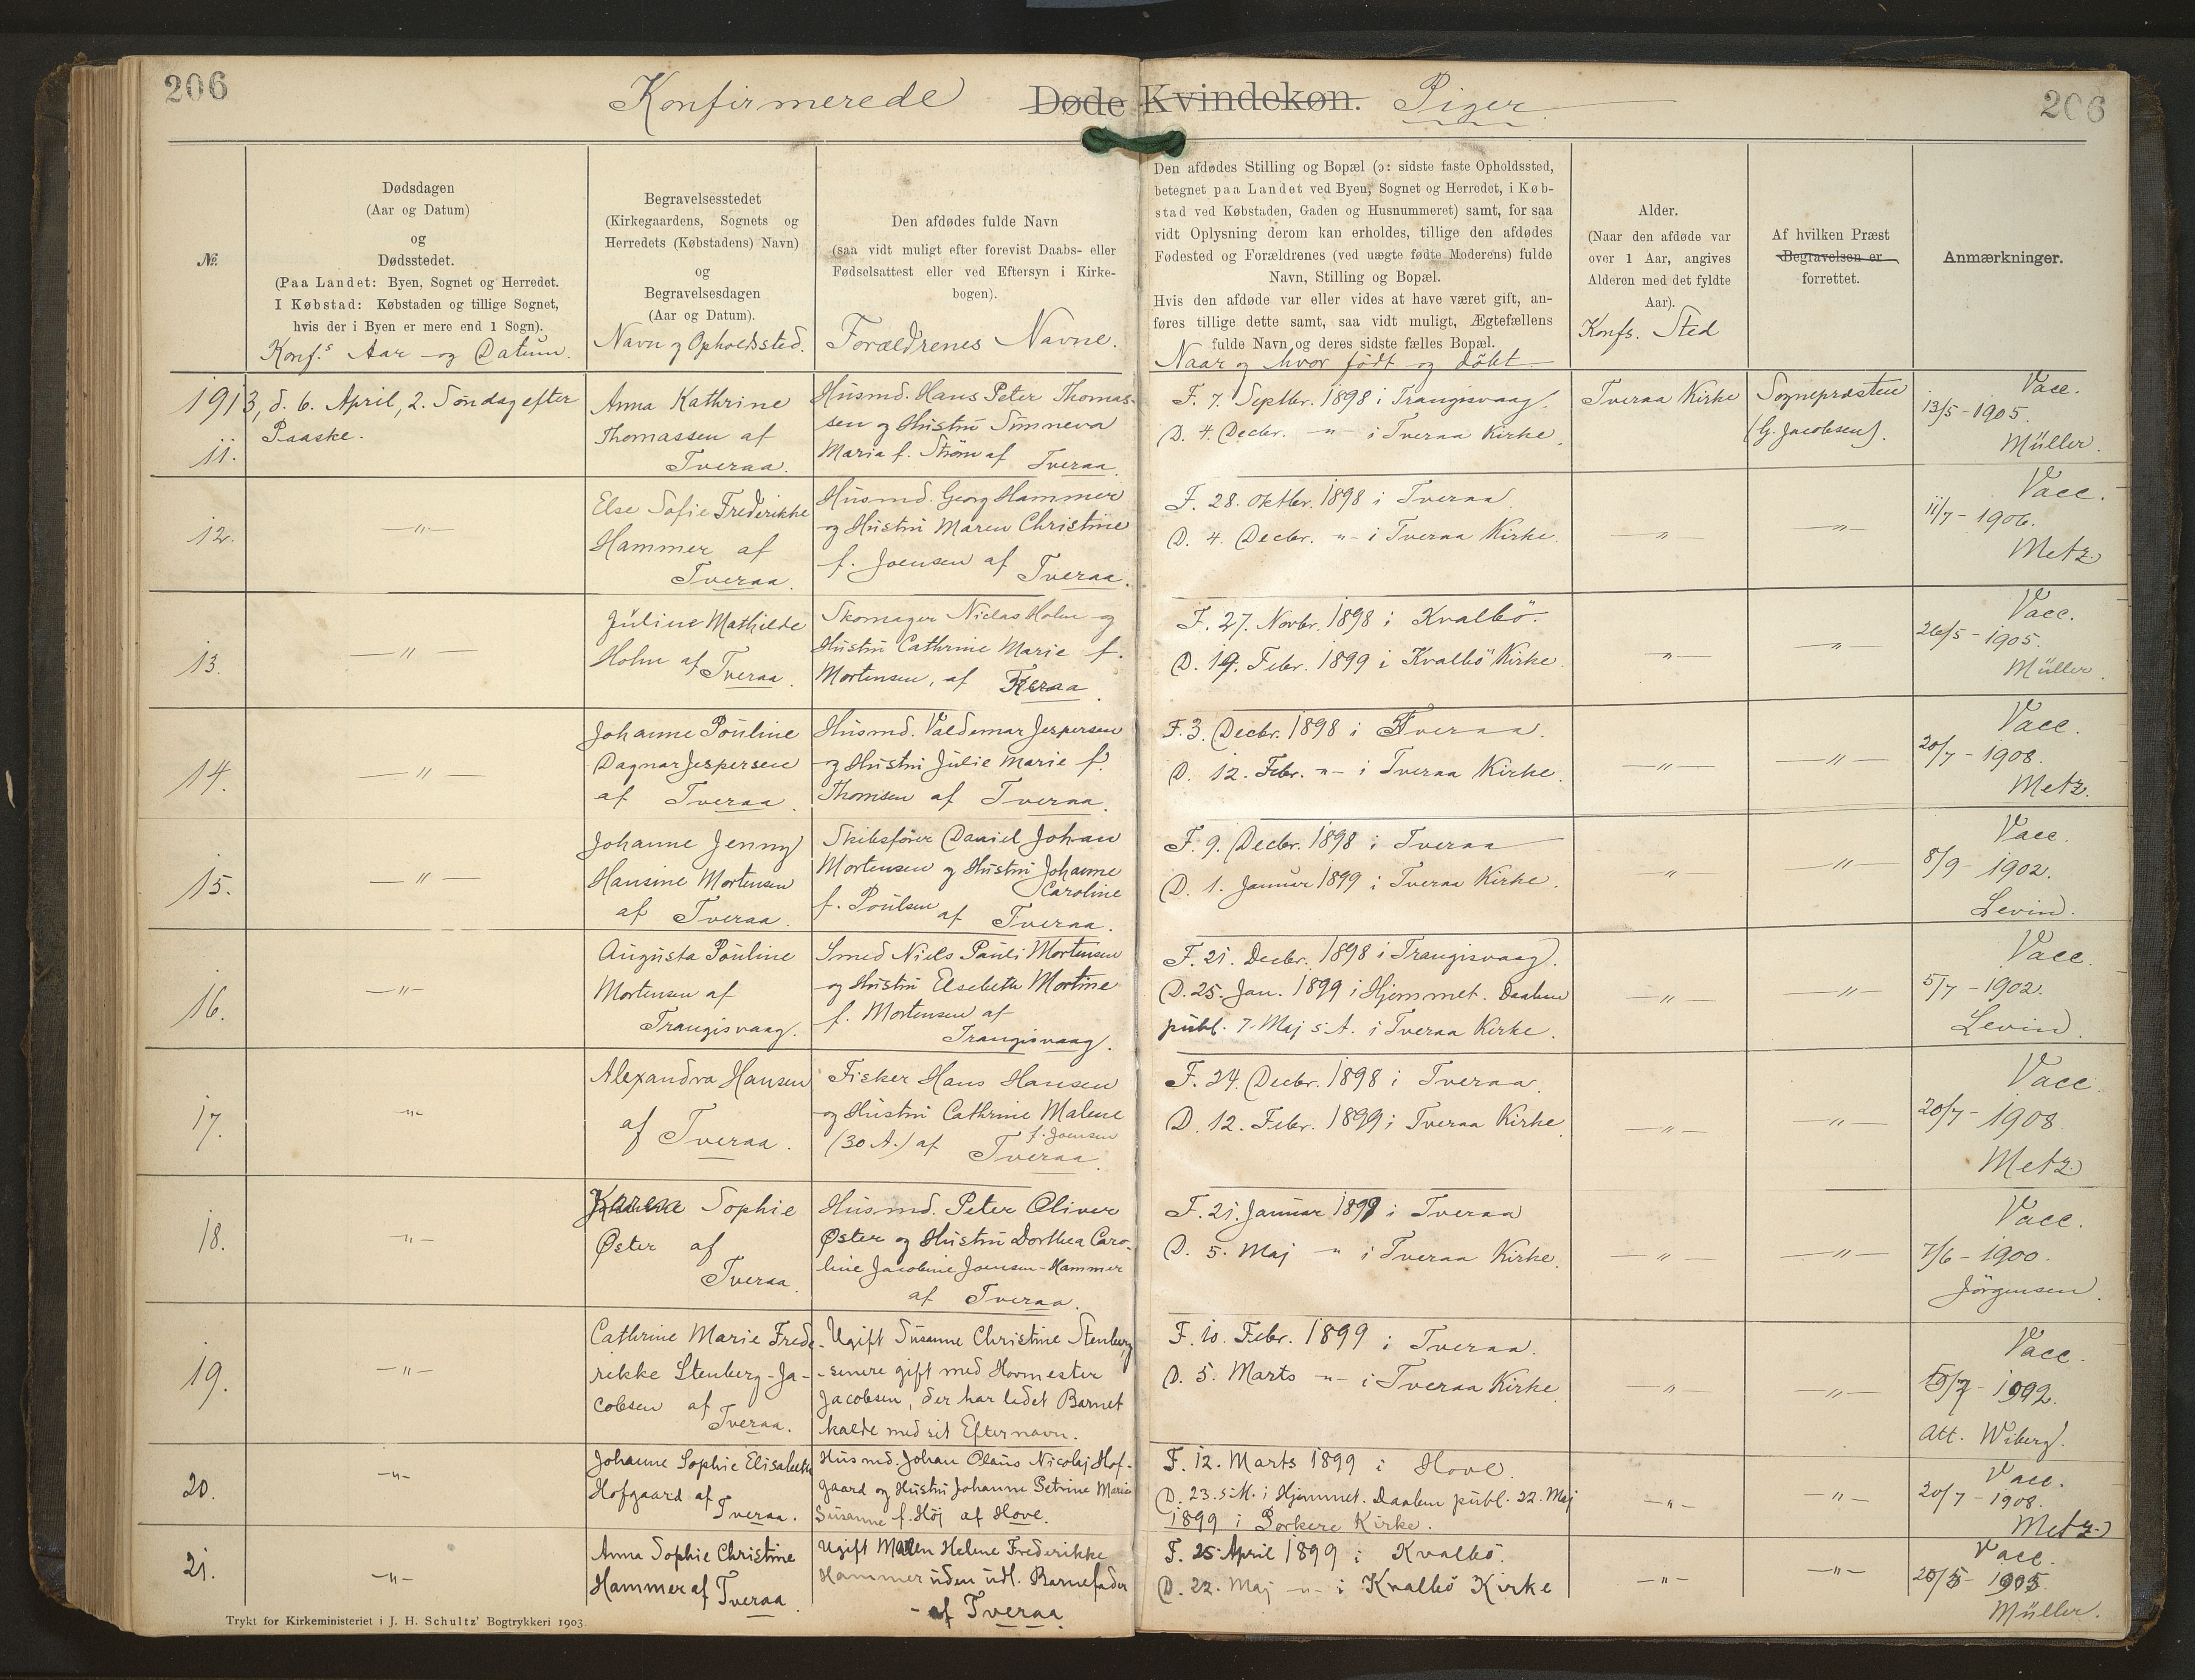 206
Konfirmerede Døde Kvindekøn. Piger
206
№.
Dødsdagen
(Aar og Datum)
og
Dødsstedet.
(Paa Landet: Byen, Sognet og Herredet.
I Købstad: Købstaden og tillige Sognet,
hvis der i Byen er mere end 1 Sogn).
Konf.s Aar og Datum.
Begravelsesstedet
(Kirkegaardens, Sognets og
Herredets (Købstadens) Navn)
og
Begravelsesdagen
(Aar og Datum).
Navn og Opholdssted.
Den afdødes fulde Navn
(saa vidt muligt efter forevist Daabs- eller
Fødselsattest eller ved Eftersyn i Kirke-
bogen).
Forældrenes Navne.
Den afdødes Stilling og Bopæl (ɔ: sidste faste Opholdssted,
betegnet paa Landet ved Byen, Sognet og Herredet, i Køb-
stad ved Købstaden, Gaden og Husnummeret) samt, for saa
vidt Oplysning derom kan erholdes, tillige den afdødes
Fødested og Forældrenes (ved uægte fødte Moderens) fulde
Navn, Stilling og Bopæl.
Hvis den afdøde var eller vides at have været gift, an-
føres tillige dette samt, saa vidt muligt, Ægtefællens
fulde Navn og deres sidste fælles Bopæl.
Naar og hvor født og döbt
Alder.
(Naar den afdøde var
over 1 Aar, angives
Alderen med det fyldte
Aar).
Konfs. Sted
Af hvilken Præst
Begravelsen er
forrettet.
Anmærkninger.
1913, d. 6. April, 2. Söndag efter
Paaske.
11.
Anna Kathrine
Thomassen af
Tveraa.
Husmd. Hans Peter Thomas-
sen og Hustru Sünneva
Maria f. Ström af Tveraa.
F. 7. Septbr. 1898 i Trangisvaag.
D. 4. Decbr. -"- i Tveraa Kirke.
Tveraa Kirke
Sognepræsten
(G. Jacobsen).
Vacc.
13/5 - 1905.
Müller.
12.
-"-
Else Sofie Frederikke
Hammer af
Tveraa.
Husmd. Georg Hammer
og Hustru Maren Christine
f. Joensen af Tveraa.
F. 28. Oktbr. 1898 i Tveraa
D. 4. Decbr. -"- i Tveraa Kirke.
-"-
-"-
Vacc.
11/7 - 1906.
Metz
13.
-"-
Juline Mathilde
Holm af Tveraa.
Skomager Niclas Holm og
Hustru Cathrine Marie f.
Mortensen, af Tveraa.
F. 27. Novbr. 1898 i Kvalbö.
D. 19. Febr. 1899 i Kvalbö Kirke.
-"-
-"-
Vacc.
26/5 - 1905.
Müller.
14.
-"-
Johanne Pouline
Dagmar Jespersen
af Tveraa.
Husmd. Valdemar Jespersen
og Hustru Julie Marie f.
Thomsen af Tveraa.
F. 3. Decbr. 1898 i Tveraa.
D. 12. Febr. -"- i Tveraa Kirke.
-"-
-"-
Vacc.
20/7 - 1908.
Metz.
15.
-"-
Johanne Jenny
Hansine Mortensen
af Tveraa.
Skibsfører Daniel Johan
Mortensen og Hustru Johanne
Caroline
f. Poulsen af Tveraa.
F. 9. Decbr. 1898 i Tveraa
D. 1. Januar 1899 i Tveraa Kirke.
-"-
-"-
Vacc.
8/9 - 1902.
Levin.
16.
-"-
Augusta Pouline
Mortensen af
Trangisvaag.
Smed Niels Pauli Mortensen
og Hustru Elsebeth Mortine
f. Mortensen af
Trangisvaag.
F. 21. Decbr. 1898 i Trangisvaag.
D. 25. Jan. 1899 i Hjemmet. Daaben
publ. 7. Maj s. A. i Tveraa Kirke.
-"-
-"-
Vacc.
5/7 - 1902.
Levin.
17.
-"-
Alexandra Hansen
af Tveraa.
Fisker Hans Hansen
og Hustru Cathrine Malene
f. Joensen
(30 A.) af Tveraa.
F. 24. Decbr. 1898 i Tveraa.
D. 12. Febr. 1899 i Tveraa Kirke
-"-
-"-
Vacc.
20/7 - 1908.
Metz
18.
-"-
Sophie
Øster af
Tveraa
Husmd. Peter Oliver
Øster og Hustru Dorthea Caro-
line Jacobine Joensen-Hammer
af Tveraa.
F. 21. Januar 1899 i Tveraa
D. 5. Maj -"- i Tveraa Kirke.
-"-
-"-
Vacc.
7/6 - 1900.
Jörgensen.
19.
-"-
Cathrine Marie Frede-
rikke Stenberg-Ja-
cobsen af
Tveraa.
Ugift Susanne Christine Stenberg,
- senere gift med Hovmester
Jacobsen, der har ladet Barnet
kalde med sit Efternavn.
F. 10. Febr. 1899 i Tveraa.
D. 5. Marts -"- i Tveraa Kirke
-"-
-"-
Vacc.
Att. Wiberg.
20.
-"-
Johanne Sophie Elisabeth
Hofgaard af
Tveraa.
Husmd. Johan Olaus Nicolaj Hof-
gaard og Hustru Johanne Petrine Marie
Susanne f. Höj af Hove.
F. 12. Marts 1899 i Hove.
D. 23. s. M. i Hjemmet. Daaben publ. 22. Maj
1899 i Porkere Kirke.
-"-
-"-
Vacc.
20/7 - 1908.
Metz
21.
-"-
Anna Sophie Christine
Hammer af Tveraa.
Ugift Maren Helene Frederikke
Hammer uden udl. Barnefader
- af Tveraa.
F. 25. April 1899 i Kvalbö.
D. 22. Maj -"- i Kvalbö Kirke
-"-
-"-
Vacc.
26/5 - 1905.
Müller.
Trykt for Kirkeministeriet i J. H. Schultz' Bogtrykkeri 1903.